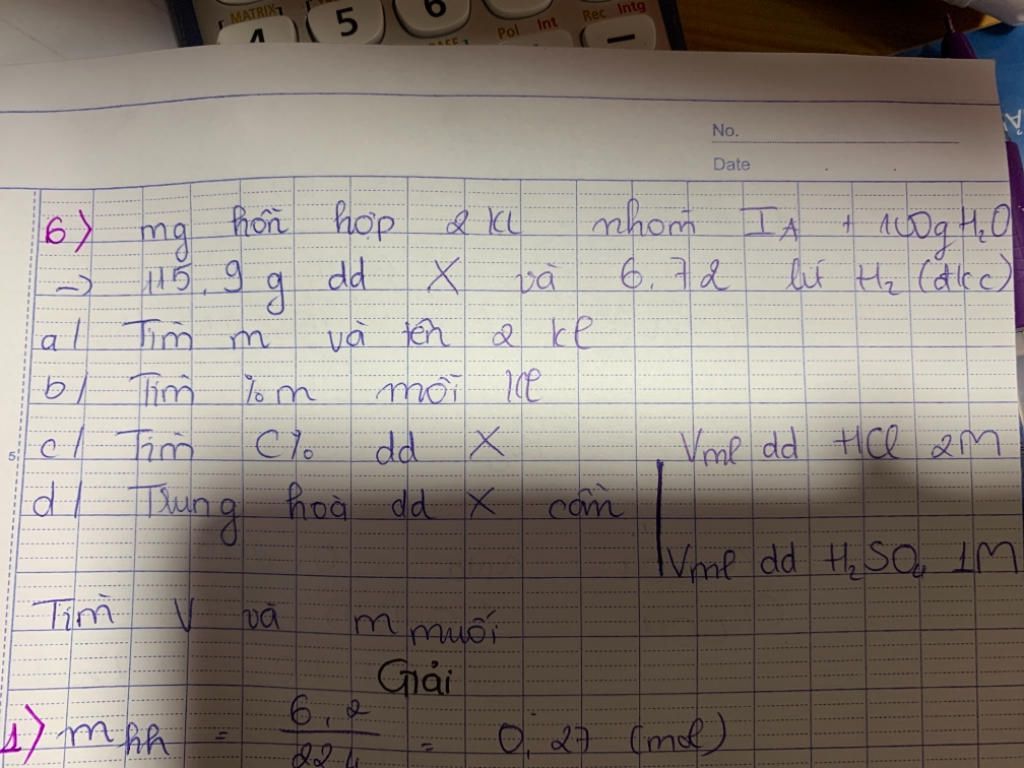 MATRIX
4 5 6
Pol Int Rec Intg
−
No.
Date
6) mg hỗn hợp 2 KL nhóm IA + 100g H₂O
→ 115,9 g dd X và 6,72 lít H₂ (đkc)
a/ Tìm m và tên 2 kl
b/ Tìm %m mỗi Kl
c/ Tìm C% dd X
d/ Trung hoà dd X cần
Vml dd HCl 2M
Vml dd H₂SO₄ 1M
Tìm V và m muối
Giải
1) mhh = 6,2 / 22,4 = 0,27 (mol)
5